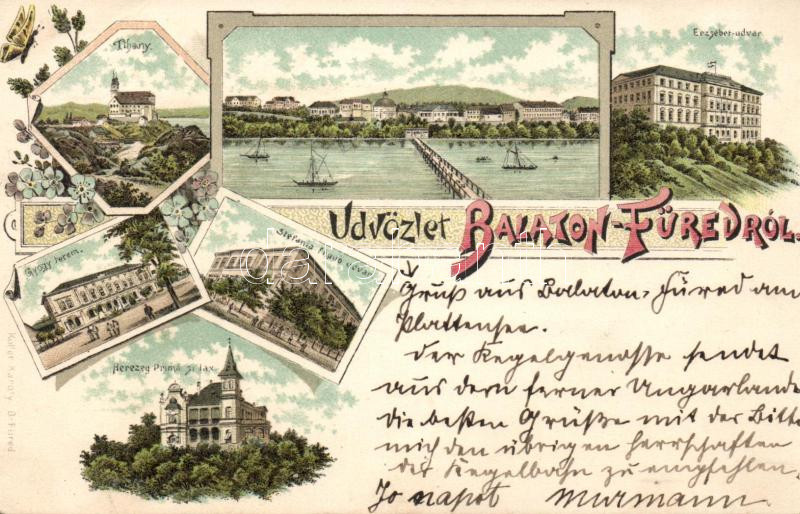 Tihany.
Erzsébet-udvar
Udvözlet BALATON-FÜREDRŐL.
Gyógy terem.
Stefánia Pravo udvar
Herczeg Primá
lax
Kurer Károly, B-Füred
Gruß aus Balaton-Füred am
Plattensee.
Der Kegelgenosse sendet
aus dem ferner Ungarlande
die besten Grüße mit der Bitte
mich den übrigen Herrschaften
der Kegelbahn zu empfehlen.
Jo napot Murmann.